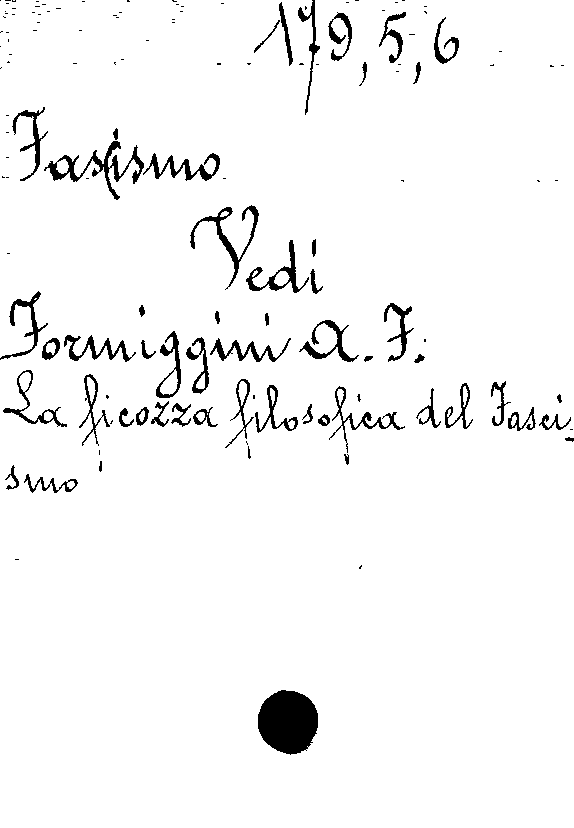 179,5,6
Fascismo
Vedi
Formiggini A. F.
La ficozza filosofica del Fasci-
smo